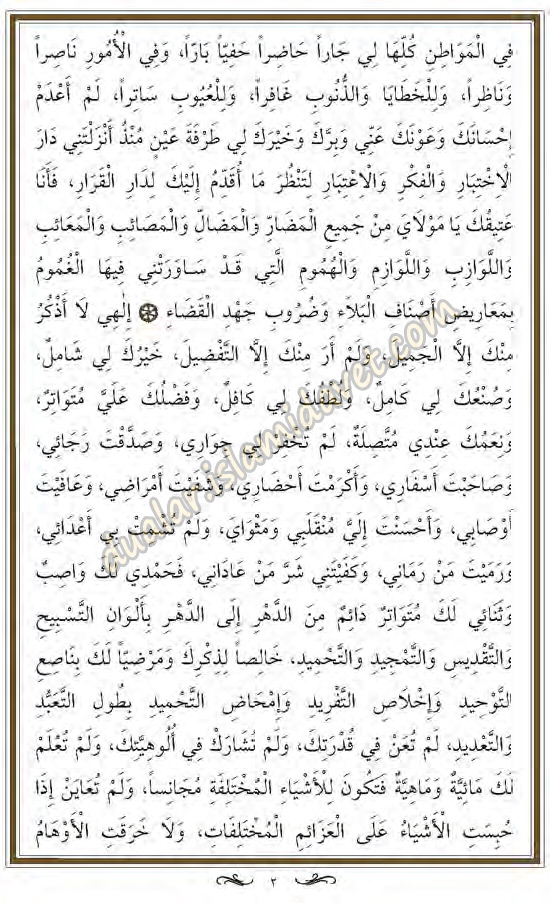 فِي الْمَوَاطِنِ كُلِّهَا لِي جَاراً حَاضِراً حَفِيّاً بَارّاً، وَفِي الْأُمُورِ نَاصِراً
وَنَاظِراً، وَلِلْخَطَايَا وَالذُّنُوبِ غَافِراً، وَلِلْعُيُوبِ سَاتِراً، لَمْ أَعْدَمْ
إِحْسَانَكَ وَعَوْنَكَ عَنِّي وَبِرَّكَ وَخَيْرَكَ لِي طَرْفَةَ عَيْنٍ مُنْذُ أَنْزَلْتَنِي دَارَ
الْاِخْتِبَارِ وَالْفِكْرِ وَالْاِعْتِبَارِ لِتَنْظُرَ مَا أُقَدِّمُ إِلَيْكَ لِدَارِ الْقَرَارِ، فَأَنَا
عَتِيقُكَ يَا مَوْلَايَ مِنْ جَمِيعِ الْمَضَارِّ وَالْمَضَالِّ وَالْمَصَائِبِ وَالْمَعَائِبِ
وَاللَّوَازِبِ وَاللَّوَازِمِ وَالْهُمُومِ الَّتِي قَدْ سَاوَرَتْنِي فِيهَا الْغُمُومُ
بِمَعَارِيضِ أَصْنَافِ الْبَلَاءِ وَضُرُوبِ جَهْدِ الْقَضَاءِ ۞ إِلٰهِي لَا أَذْكُرُ
مِنْكَ إِلَّا الْجَمِيلَ، وَلَمْ أَرَ مِنْكَ إِلَّا التَّفْضِيلَ، خَيْرُكَ لِي شَامِلٌ،
وَصُنْعُكَ لِي كَامِلٌ، وَلُطْفُكَ لِي كَافِلٌ، وَفَضْلُكَ عَلَيَّ مُتَوَاتِرٌ،
وَنِعَمُكَ عِنْدِي مُتَّصِلَةٌ، لَمْ تُخْفِرْ لِي جِوَارِي، وَصَدَّقْتَ رَجَائِي،
وَصَاحَبْتَ أَسْفَارِي، وَأَكْرَمْتَ أَحْضَارِي، وَشَفَيْتَ أَمْرَاضِي، وَعَافَيْتَ
أَوْصَابِي، وَأَحْسَنْتَ إِلَيَّ مُنْقَلَبِي وَمَثْوَايَ، وَلَمْ تُشْمِتْ بِي أَعْدَائِي،
وَرَمَيْتَ مَنْ رَمَانِي، وَكَفَيْتَنِي شَرَّ مَنْ عَادَانِي، فَحَمْدِي لَكَ وَاصِبٌ
وَثَنَائِي لَكَ مُتَوَاتِرٌ دَائِمٌ مِنَ الدَّهْرِ إِلَى الدَّهْرِ بِأَلْوَانِ التَّسْبِيحِ
وَالتَّقْدِيسِ وَالتَّمْجِيدِ وَالتَّحْمِيدِ، خَالِصاً لِذِكْرِكَ وَمَرْضِيّاً لَكَ بِنَاصِعِ
التَّوْحِيدِ وَإِخْلَاصِ التَّفْرِيدِ وَإِمْحَاضِ التَّحْمِيدِ بِطُولِ التَّعَبُّدِ
وَالتَّعْدِيدِ، لَمْ تُعَنْ فِي قُدْرَتِكَ، وَلَمْ تُشَارَكْ فِي أُلُوهِيَّتِكَ، وَلَمْ تُعْلَمْ
لَكَ مَائِيَّةٌ وَمَاهِيَّةٌ فَتَكُونَ لِلْأَشْيَاءِ الْمُخْتَلِفَةِ مُجَانِساً، وَلَمْ تُعَايَنْ إِذَا
حُبِسَتِ الْأَشْيَاءُ عَلَى الْعَزَائِمِ الْمُخْتَلِفَاتِ، وَلَا خَرَقَتِ الْأَوْهَامُ
٢
dualar.islamidavet.com